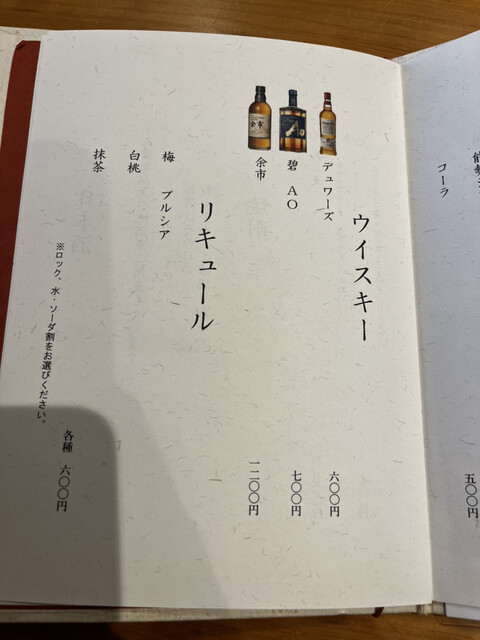 コーラ
五〇〇円
ウイスキー
デュワーズ 六〇〇円
碧 AO 七〇〇円
余市 一二〇〇円
余市
リキュール
梅 プルシア
白桃
抹茶
各種 六〇〇円
※ロック、水・ソーダ割をお選びください。